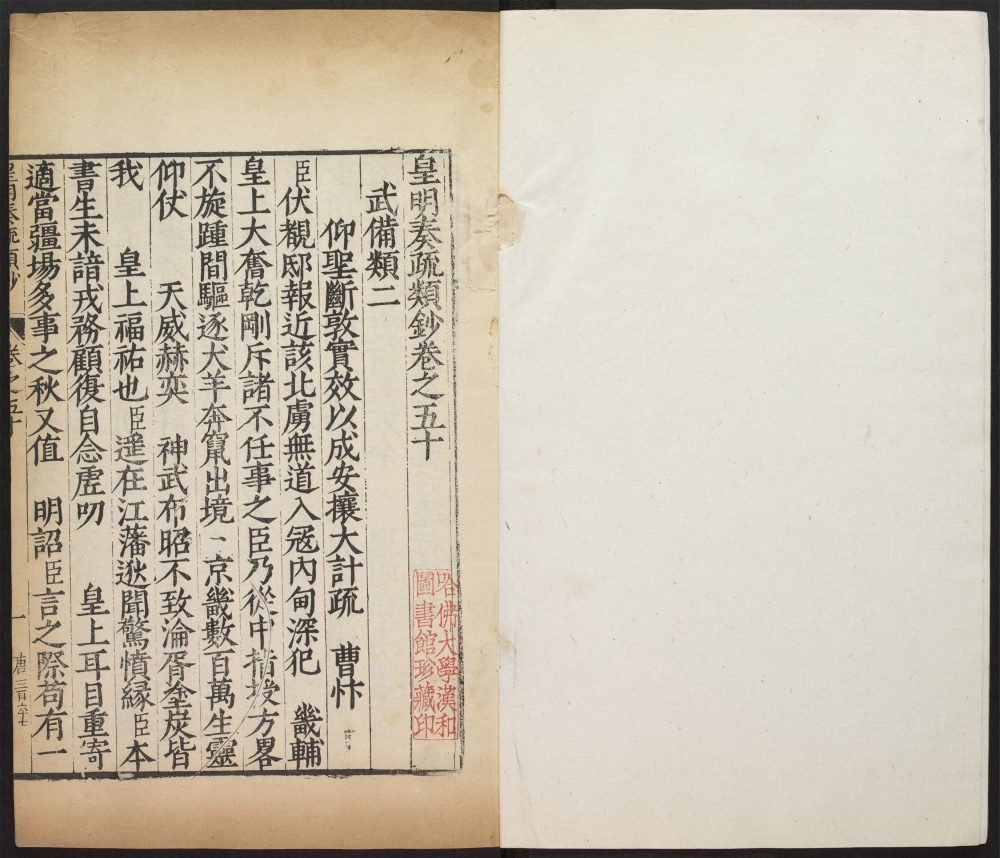 皇明奏疏類鈔卷之五十
武備類二
仰聖斷敦實效以成安攘大計疏 曹忭
臣伏覩邸報近該北虜無道入冦內甸深犯 畿輔
皇上大奮乾剛斥諸不任事之臣乃從中措授方畧
不旋踵間驅逐犬羊奔竄出境 京畿數百萬生靈
仰伏 天威赫奕 神武布昭不致淪胥塗炭皆
我 皇上福祐也臣遥在江藩逖聞驚憤縁臣本
書生未諳戎務顧復自念虗叨 皇上耳目重寄
適當疆塲多事之秋又值 明詔臣言之際苟有一
皇明奏疏類鈔 卷之五十 一 唐 三百六十七
哈佛大學漢和
圖書館珍藏印